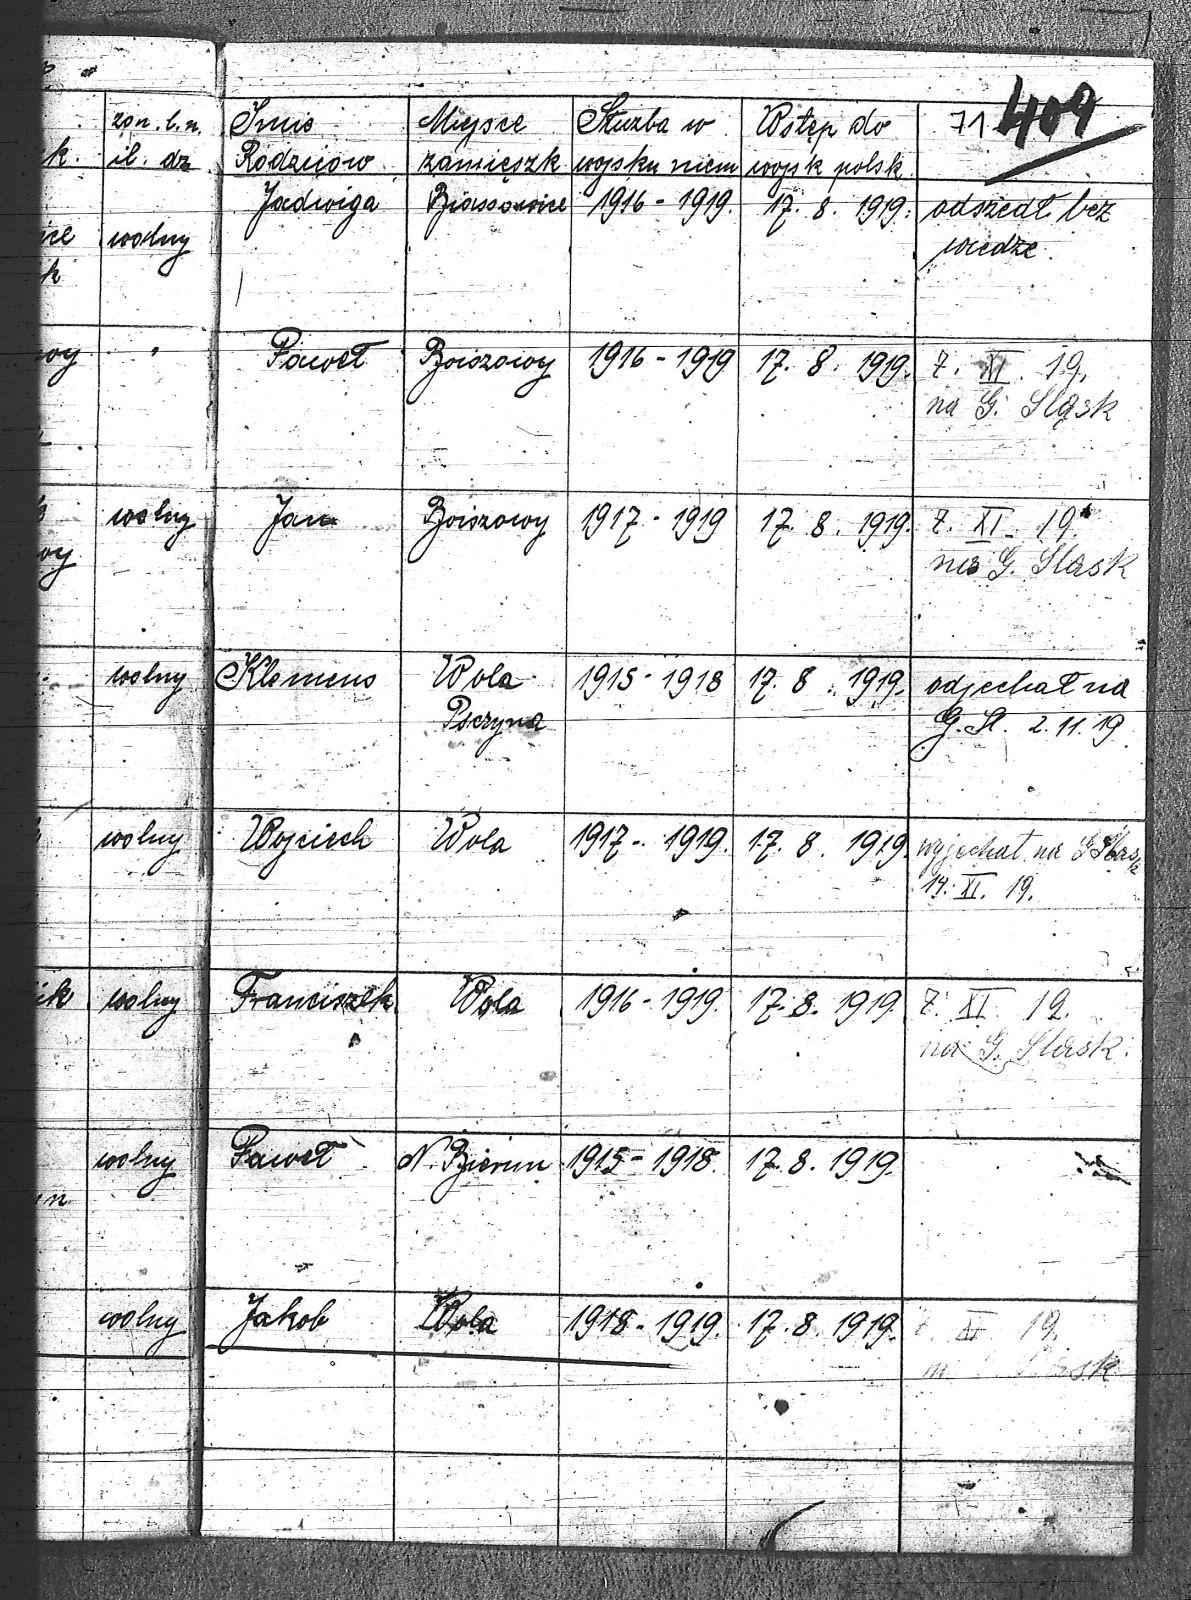 żon. l. n. Imie Miejsce Służba w Wstęp do 71 409
k. il. dz Rodziców zamieszk wojsku niem wojsk polsk
Jadwiga Biassowice 1916 - 1919. 17. 8. 1919. odszedł bez
wolny wiedze.
k
Paweł Boiszowy 1916 - 1919 17. 8. 1919. 7. XI. 19.
na G. Sląsk
wolny Jan Boiszowy 1917 - 1919 17. 8. 1919. 7. XI. 19.
na G. Slask
wolny Klemens Wola 1915 - 1918 17. 8. 1919. odjechał na
Psczyna G. Sl. 2. 11. 19
wolny Wojciech Wola 1917 - 1919. 17. 8. 1919. wyjechał na G Slask
14. XI. 19.
ik wolny Franciszek Wola 1916 - 1919. 17. 8. 1919. 7. XI 19.
na G. Slask.
wolny Paweł N. Bierun 1915 - 1918. 17. 8. 1919.
wolny Jakob Wola 1918 - 1919. 17. 8. 1919. XI 19.